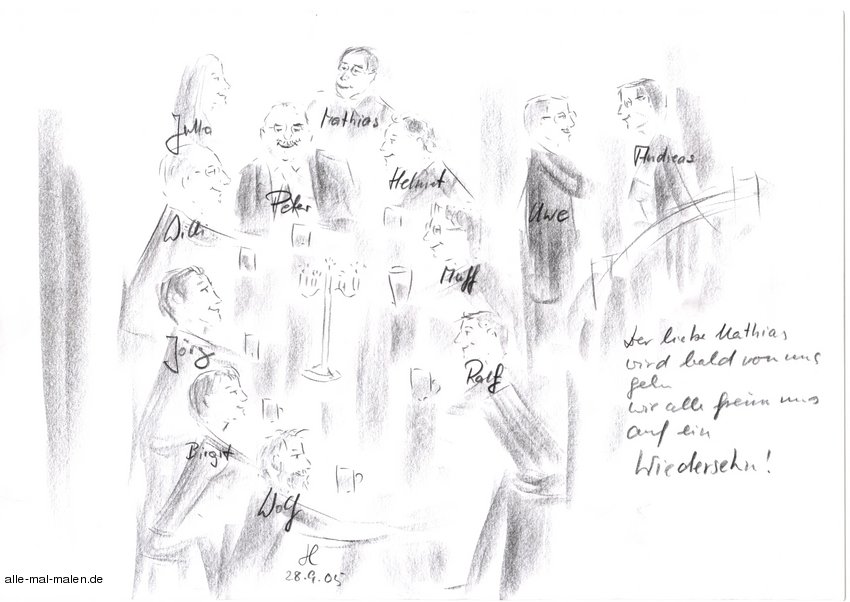 Julia
Mathias
Peter
Helmut
Uwe
Andreas
Willi
Muff
Jörg
Ralf
Birgit
Wolf
Der liebe Mathias
wird bald von uns
gehn
wir alle freun uns
auf ein
Wiedersehn!
H
28.9.05
alle-mal-malen.de